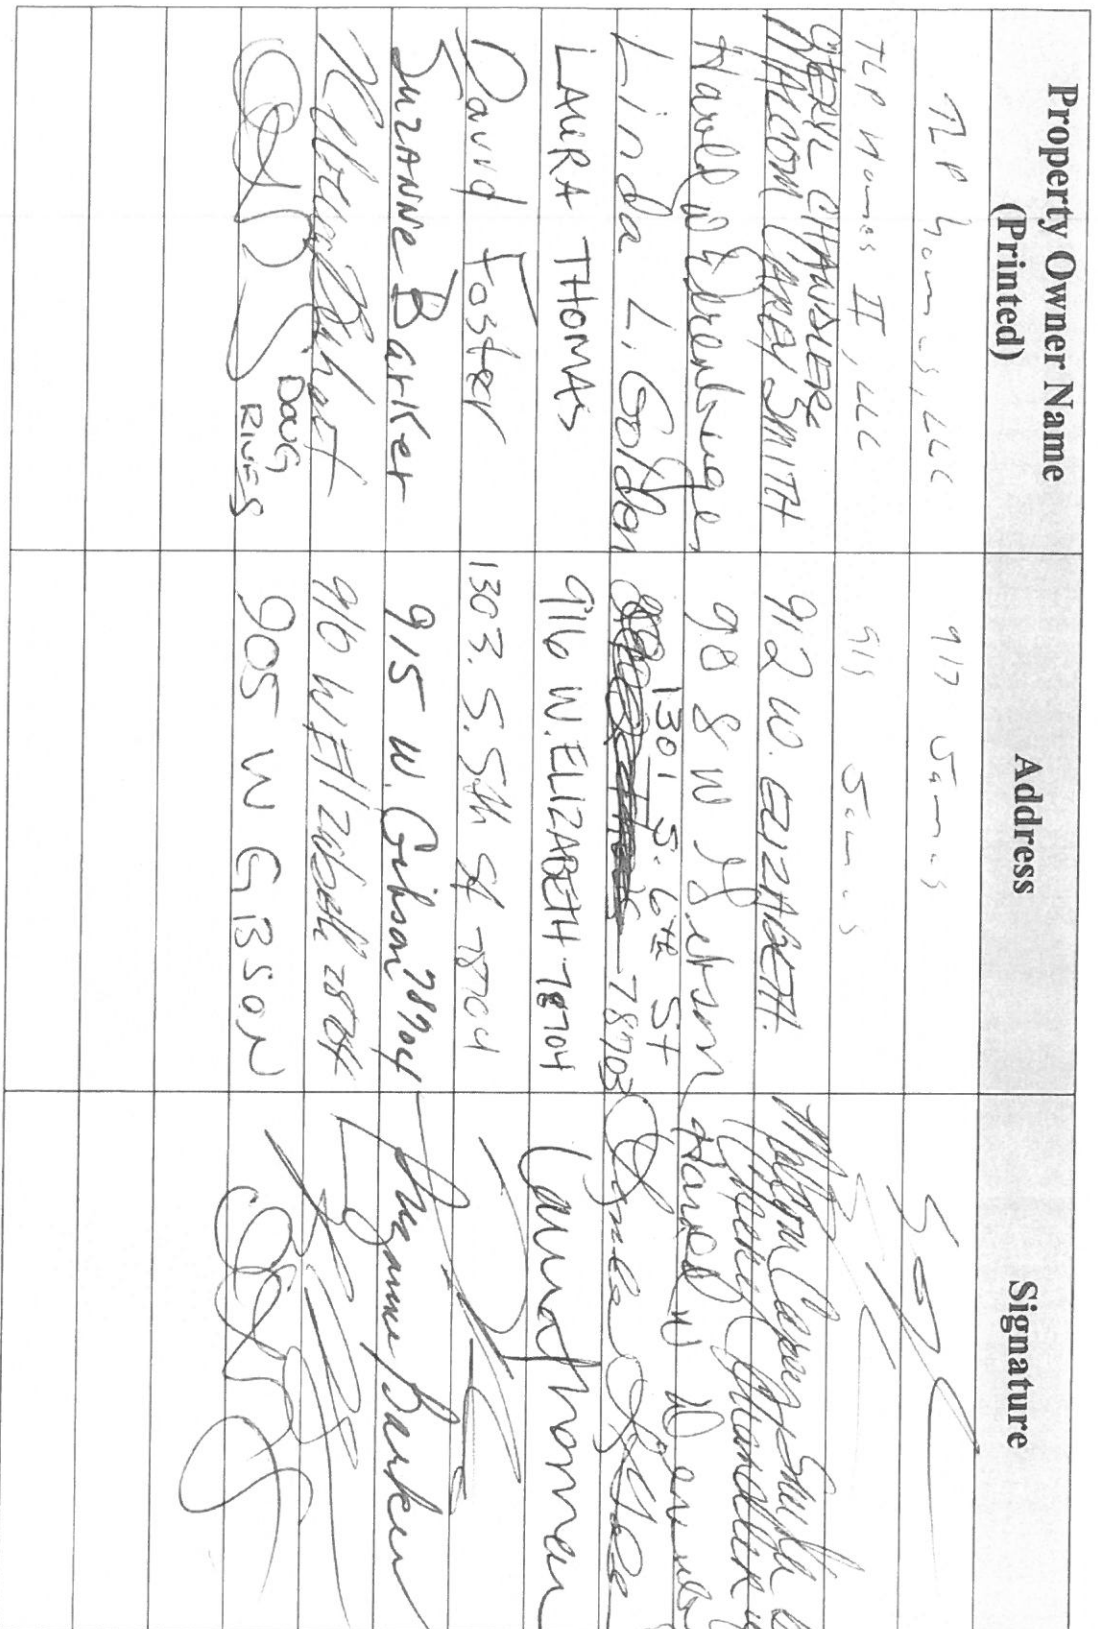 Property Owner Name
(Printed)
Address
Signature
TLP Homes, LLC
917 James
TLP Homes II, LLC
915 James
CHERYL CHANDLER &
MALCOM CAREY SMITH
912 W. ELIZABETH.
Malcom Carey Smith
Cheryl Chandler
Harold W
908 W
Harold W
Linda L. Golden
1301 S. 6TH St
78703
LAURA THOMAS
916 W. ELIZABETH 78704
Laura Thomas
David Foster
1303. S. 5th St 78704
Suzanne Barker
915 W. Gibson 78704
Suzanne Barker
910 W Elizabeth 78704
DOUG
RIVES
905 W GIBSON